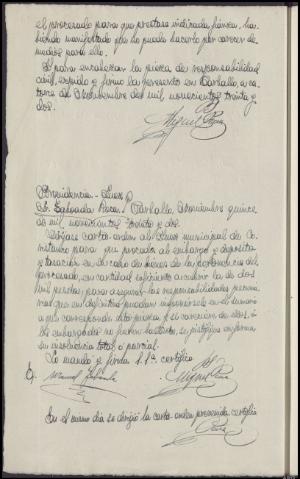 el procesado para que prestara indicada fianza, ha-
biendo manifestado que no puede hacerlo por carecer de
medios para ello.
Y para encabezar la pieza de responsabilidad
civil, expido y firmo la presente en Carballo, a ca-
torce de Noviembre de mil novecientos treinta y
dos.
Miguel
Providencia - Juez
Sr. Carballo Noviembre quince
de mil novecientos treinta y dos.
Diríjase carta-orden al Juez municipal de Co-
ristanco para que proceda al embargo, depósito
y tasación en su caso de bienes de la pertenencia del
procesado, en cantidad suficiente a cubrir la de dos
mil pesetas, para asegurar las responsabilidades pecunia-
rias que en definitiva puedan imponérsele en el sumario
a que corresponde esta pieza; y si careciere de ellos, ó
los embargados no fueran bastante, se justifique en forma
su insolvencia total ó parcial.
Lo mandó y firma S.Sª. certifico
Miguel
En el mismo día se dirigió la carta-orden prevenida, certifico